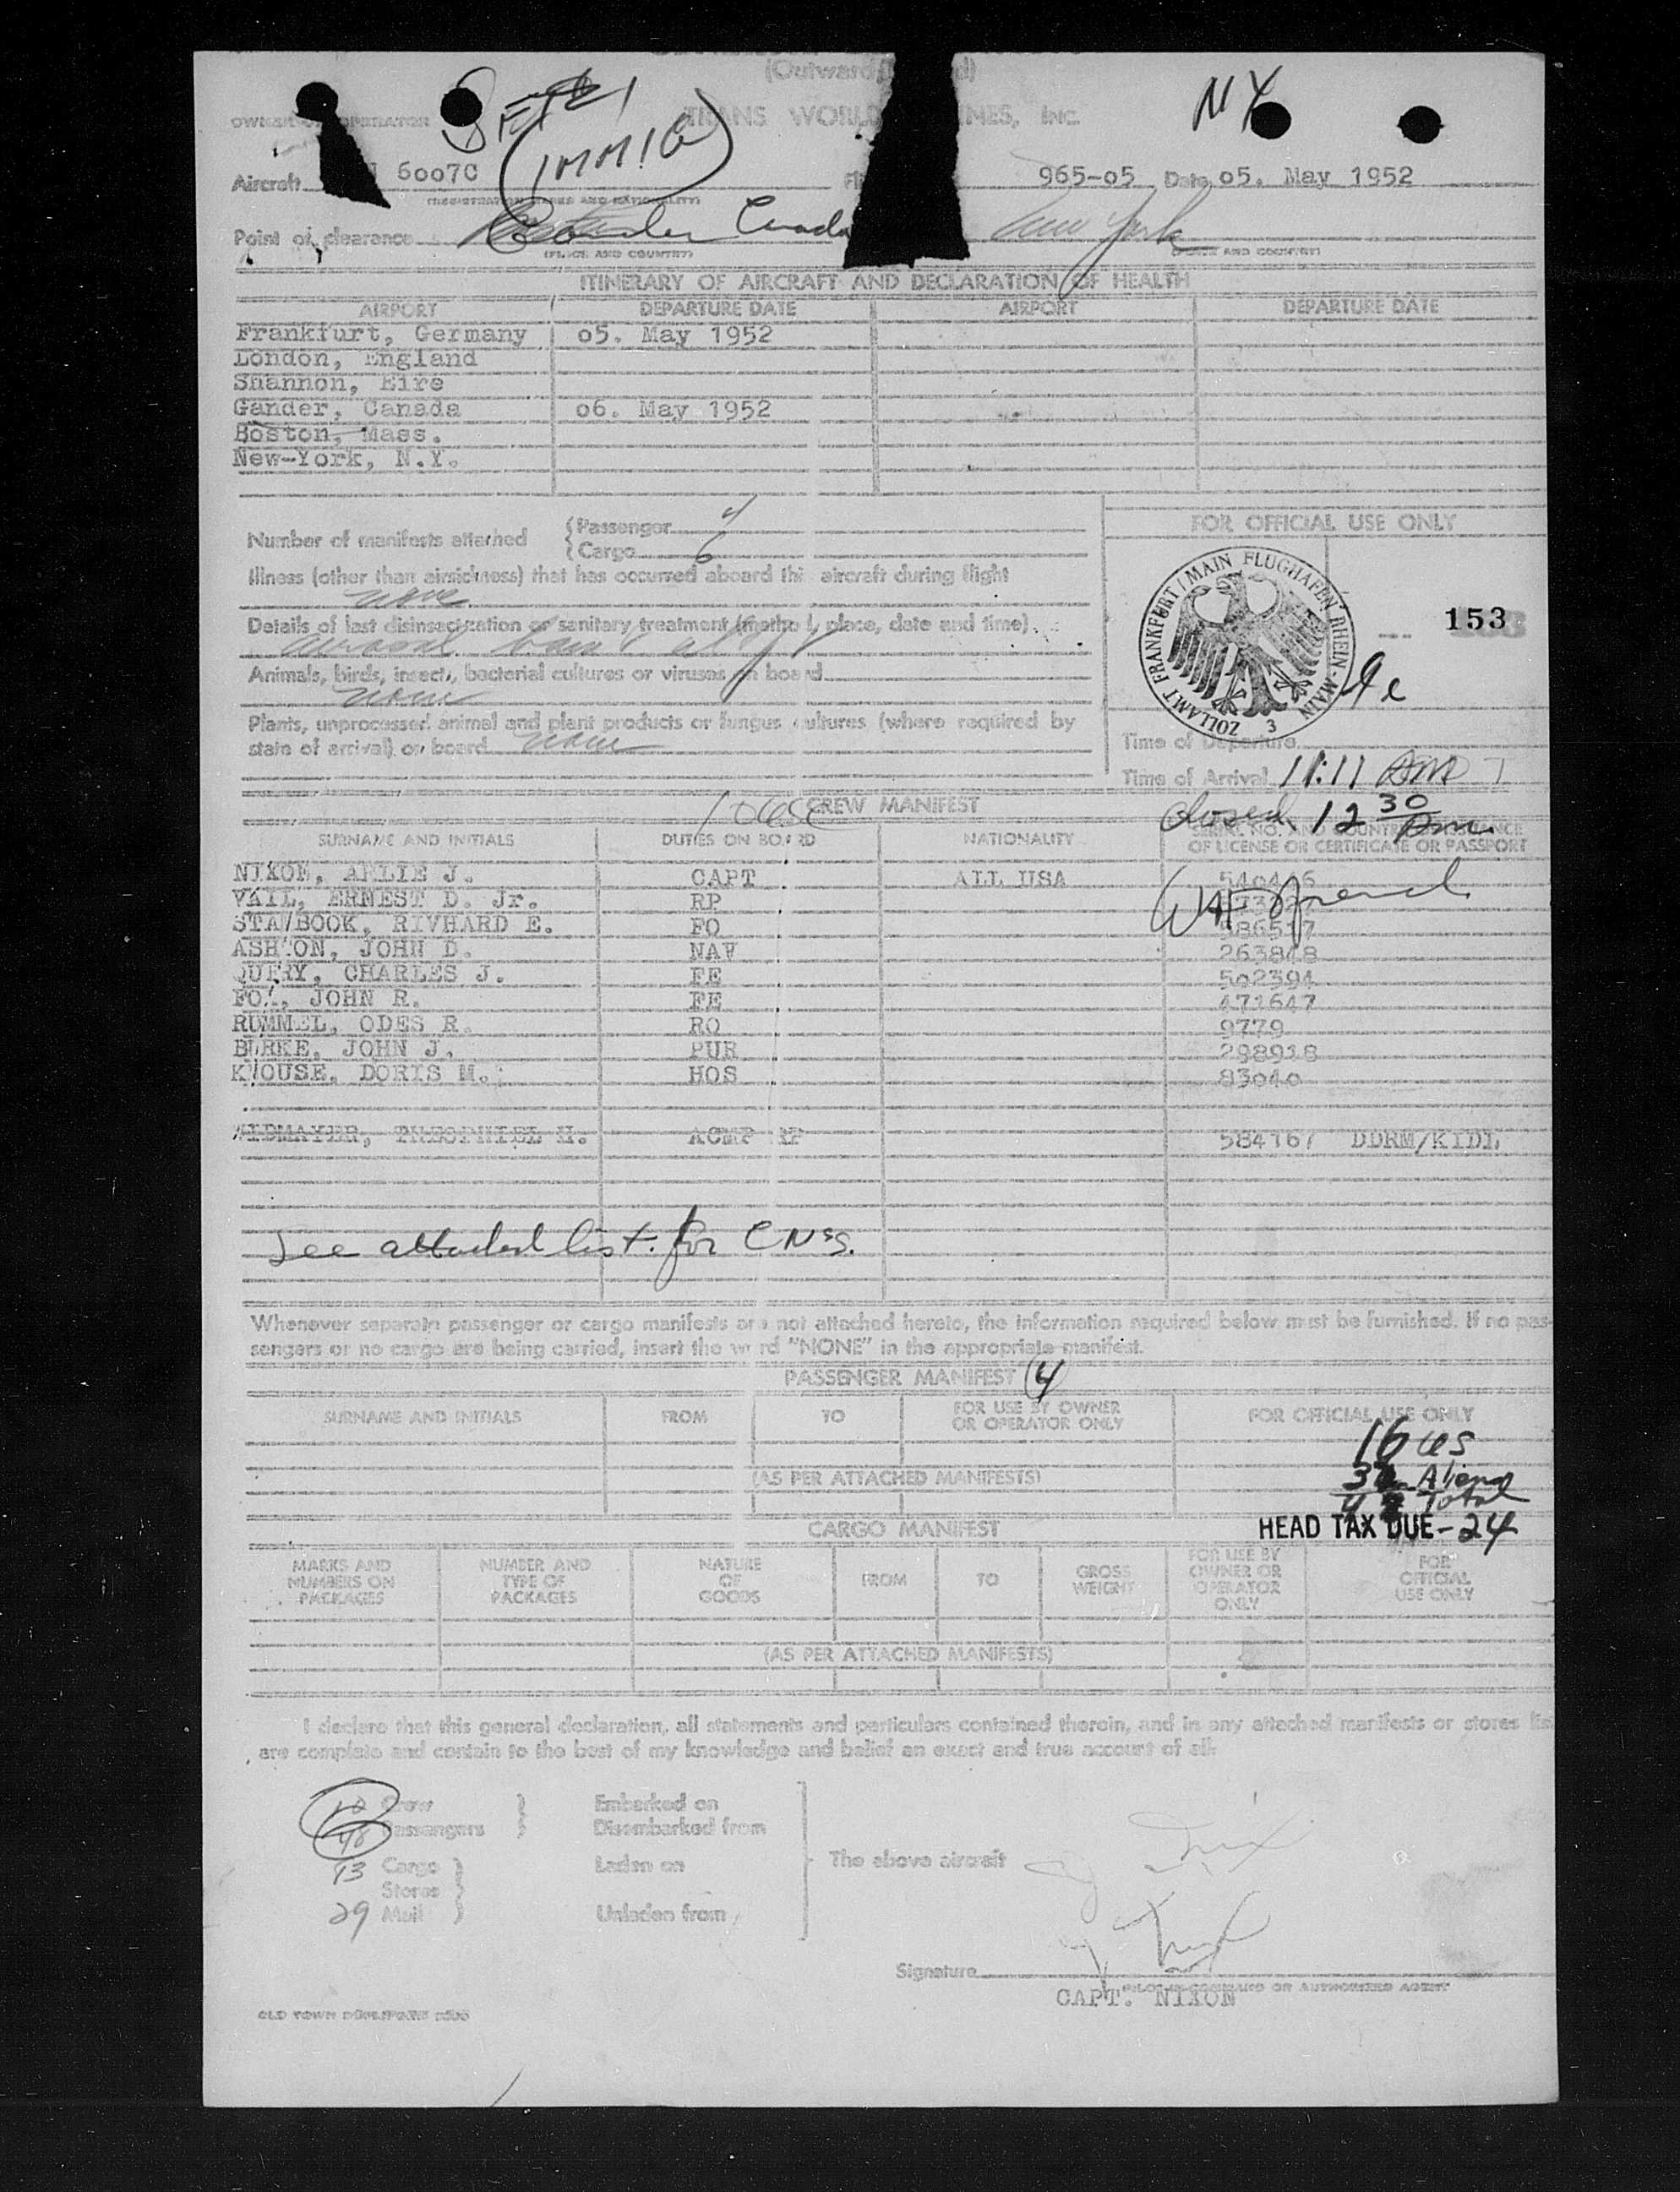 (Outward
OWNER OR OPERATOR TRANS WORLD INES, INC. NY
(IMMIG)
Aircraft N 6007C Fli 965-05 Date 05. May 1952
(REGISTRATION MARKS AND NATIONALITY)
Point of clearance Gander Canada New York
(PLACE AND COUNTRY) (PLACE AND COUNTRY)
ITINERARY OF AIRCRAFT AND DECLARATION OF HEALTH
AIRPORT DEPARTURE DATE AIRPORT DEPARTURE DATE
Frankfurt, Germany 05. May 1952
London, England
Shannon, Eire
Gander, Canada 06. May 1952
Boston, Mass.
New-York, N.Y.
Number of manifests attached {Passenger 4
{Cargo 6
FOR OFFICIAL USE ONLY
Illness (other than airsickness) that has occurred aboard this aircraft during flight
none
Details of last disinsectization or sanitary treatment (method, place, date and time)
Animals, birds, insects, bacterial cultures or viruses on board
none
Plants, unprocessed animal and plant products or fungus cultures (where required by
state of arrival) on board none
ZOLLAMT FRANKFURT/MAIN FLUGHAFEN RHEIN-MAIN 3
153
Time of Departure
Time of Arrival 11:11 AM
closed 12 30 pm
CREW MANIFEST
SURNAME AND INITIALS DUTIES ON BOARD NATIONALITY SERIAL NO. AND COUNTRY OF ISSUANCE
OF LICENSE OR CERTIFICATE OR PASSPORT
NIXON, ARLIE J. CAPT ALL USA
VAIL, ERNEST D. Jr. RP
STA/BOOK, RIVHARD E. FO 386517
ASHTON, JOHN D. NAV 263848
QUERY, CHARLES J. FE 502394
FOX, JOHN R. FE 471647
RUMMEL, ODES R. RO 9779
BURKE, JOHN J. PUR 298918
KNOUSE, DORIS M. HOS 83040
WIDMAYER, THEOPHIEL H. ACMP RP 584167 DDRM/KIDL
See attached list for CNSS.
Whenever separate passenger or cargo manifests are not attached hereto, the information required below must be furnished. If no pas-
sengers or no cargo are being carried, insert the word "NONE" in the appropriate manifest.
PASSENGER MANIFEST (4)
SURNAME AND INITIALS FROM TO FOR USE BY OWNER OR OPERATOR ONLY FOR OFFICIAL USE ONLY
16 US
Aliens
(AS PER ATTACHED MANIFESTS)
Total
CARGO MANIFEST HEAD TAX DUE-24
MARKS AND NUMBERS ON PACKAGES NUMBER AND TYPE OF PACKAGES NATURE OF GOODS FROM TO GROSS WEIGHT FOR USE BY OWNER OR OPERATOR ONLY FOR OFFICIAL USE ONLY
(AS PER ATTACHED MANIFESTS)
I declare that this general declaration, all statements and particulars contained therein, and in any attached manifests or stores lis
are complete and contain to the best of my knowledge and belief an exact and true account of all
10 Crew } Embarked on
48 Passengers } Disembarked from
93 Cargo } Laden on The above aircraft
Stores }
29 Mail } Unladen from
Signature
PILOT IN COMMAND OR AUTHORIZED AGENT
CAPT. NIXON